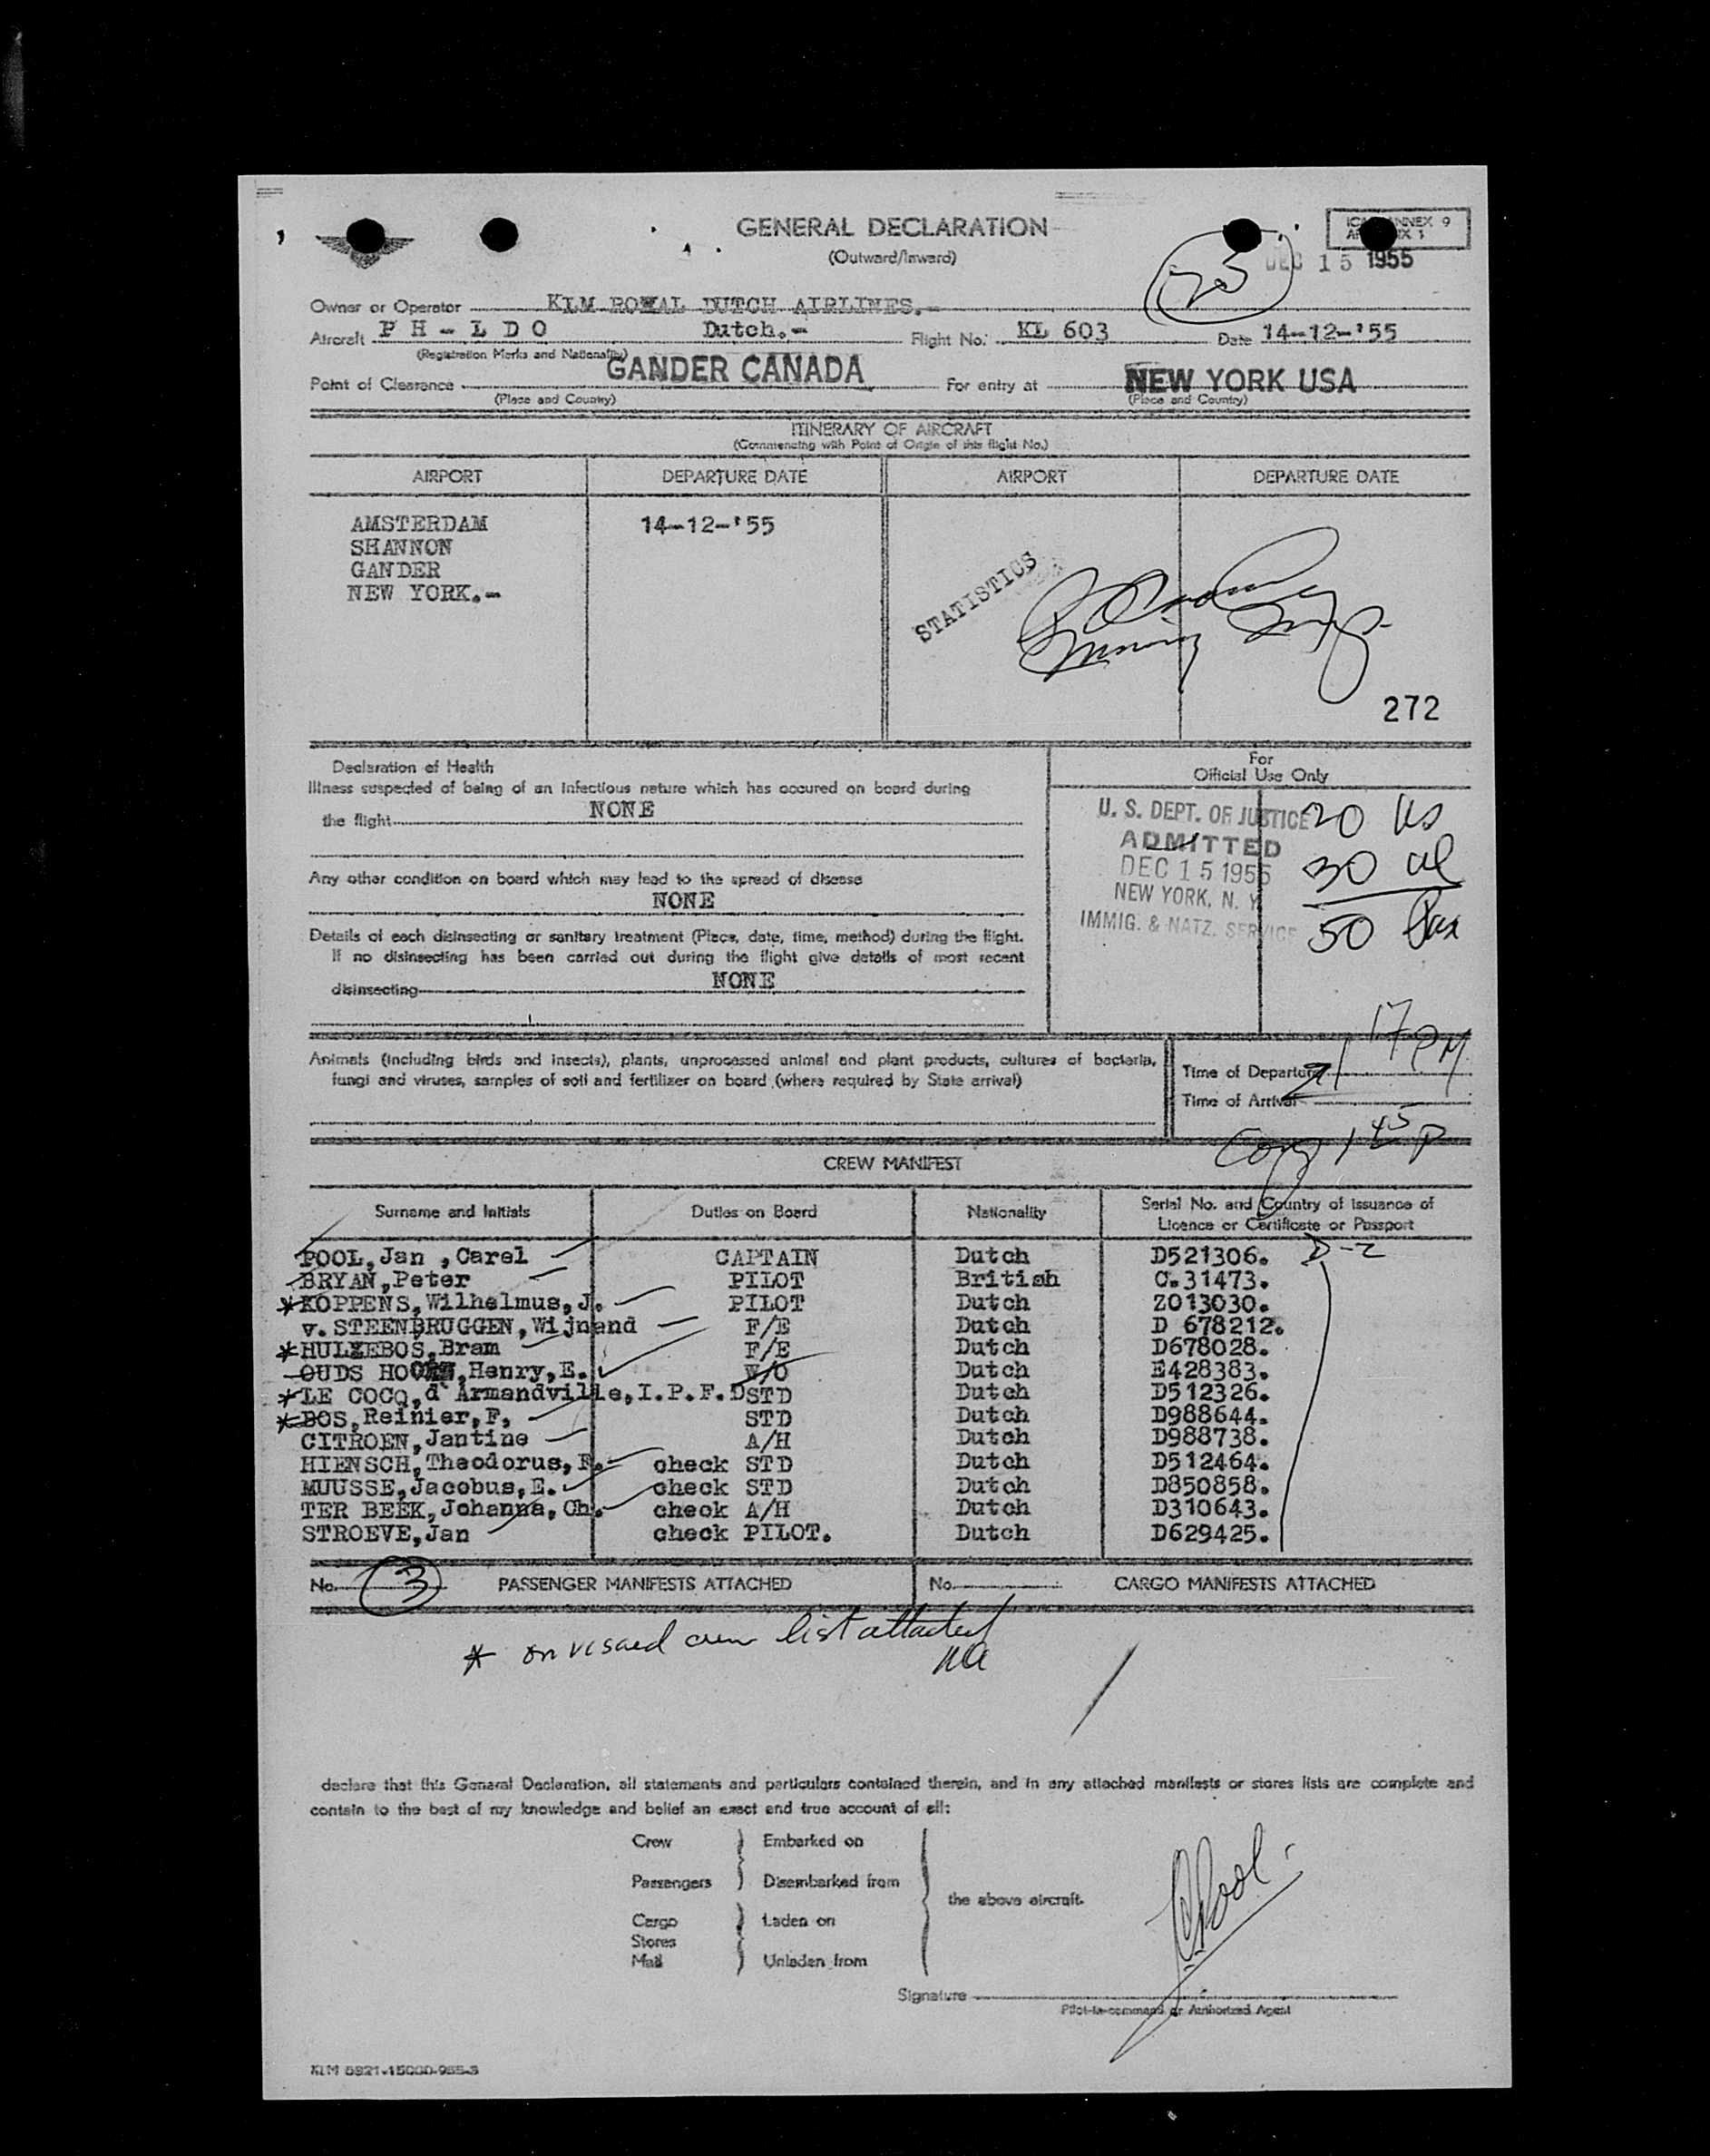 GENERAL DECLARATION
(Outward/Inward)
ANNEX 9
DEC 15 1955
25
Owner or Operator KLM ROYAL DUTCH AIRLINES.-
Aircraft P H - L D O Dutch.- Flight No: KL 603 Date 14-12-'55
(Registration Marks and Nationality)
Point of Clearance GANDER CANADA For entry at NEW YORK USA
(Place and Country) (Place and Country)
ITINERARY OF AIRCRAFT
(Commencing with Point of Origin of this flight No.)
AIRPORT DEPARTURE DATE AIRPORT DEPARTURE DATE
AMSTERDAM 14-12-'55
SHANNON
GANDER
NEW YORK.-
STATISTICS
272
Declaration of Health
Illness suspected of being of an infectious nature which has occured on board during
the flight NONE
Any other condition on board which may lead to the spread of disease
NONE
Details of each disinsecting or sanitary treatment (Place, date, time, method) during the flight.
If no disinsecting has been carried out during the flight give details of most recent
disinsecting NONE
For
Official Use Only
U. S. DEPT. OF JUSTICE
ADMITTED
DEC 15 1955
NEW YORK, N. Y.
IMMIG. & NATZ. SERVICE
20 US
30 al
50 Pax
Animals (including birds and insects), plants, unprocessed animal and plant products, cultures of bacteria,
fungi and viruses, samples of soil and fertilizer on board (where required by State arrival)
Time of Departure
Time of Arrival
17 PM
1 45 P
CREW MANIFEST
Surname and Initials Duties on Board Nationality Serial No. and Country of issuance of
Licence or Certificate or Passport
POOL, Jan , Carel CAPTAIN Dutch D521306. D-2
BRYAN, Peter PILOT British C.31473.
*KOPPENS, Wilhelmus, J. PILOT Dutch Z013030.
v. STEENBRUGGEN, Wijnand F/E Dutch D 678212.
*HULZEBOS, Bram F/E Dutch D678028.
OUDS HOORN, Henry, E. W/O Dutch E428383.
*LE COCQ, d'Armandville, I.P.F.D STD Dutch D512326.
*BOS, Reinier, F, STD Dutch D988644.
CITROEN, Jantine A/H Dutch D988738.
HIENSCH, Theodorus, F. check STD Dutch D512464.
MUUSSE, Jacobus, E. check STD Dutch D850858.
TER BEEK, Johanna, Ch. check A/H Dutch D310643.
STROEVE, Jan check PILOT. Dutch D629425.
No. 3 PASSENGER MANIFESTS ATTACHED No. CARGO MANIFESTS ATTACHED
* on visaed crew list attached
declare that this General Declaration, all statements and particulars contained therein, and in any attached manifests or stores lists are complete and
contain to the best of my knowledge and belief an exact and true account of all:
Crew Embarked on
Passengers Disembarked from
the above aircraft.
Cargo Laden on
Stores
Mail Unladen from
Pool
Signature
Pilot-in-command or Authorized Agent
KLM 5821-15000-955-3